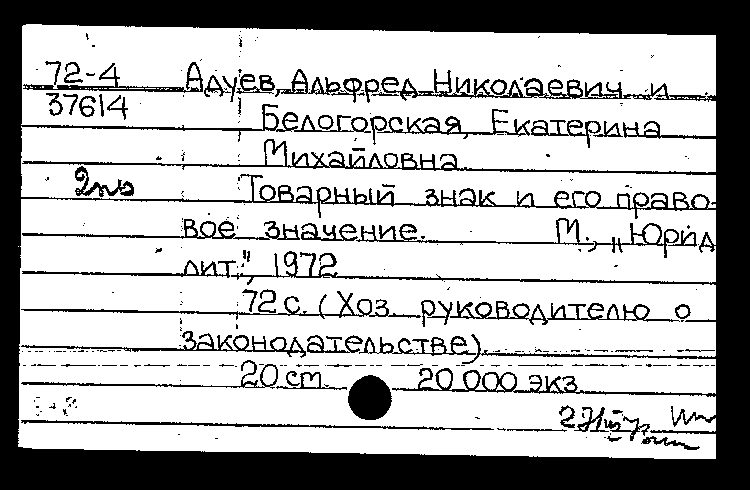 72-4 Адуев, Альфред Николаевич и
37614 Белогорская, Екатерина
Михайловна
Товарный знак и его право-
вое значение. М., „Юрид
лит.", 1972
72 с. (Хоз. руководителю о
законодательстве).
20 см 20 000 экз